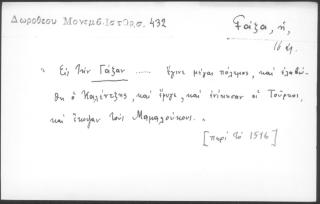 Δωροθέου Μονεμβ. Ιστορ. 432
Γάζα, ἡ,
16 αι.
« Εἰς τὴν Γάζαν ...... ἔγινε μέγας πόλεμος, καὶ ἐλαβώ-
θη ὁ Καλέντζης, καὶ ἔφυγε, καὶ ἐνίκησαν οἱ Τοῦρκοι,
καὶ ἔκοψαν τοὺς Μαμαλούκους. »
[περὶ τὸ 1516]